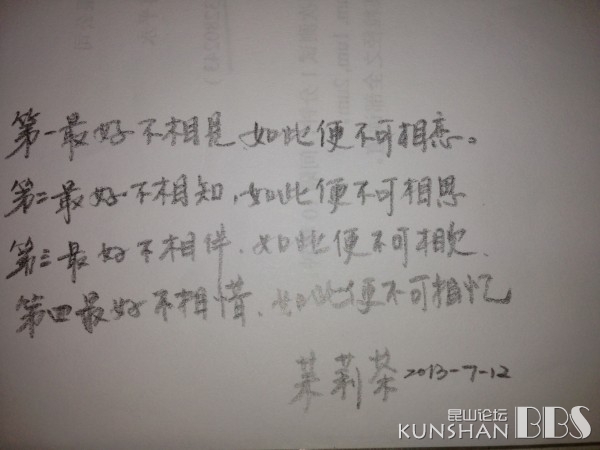 第一最好不相見,如此便不可相恋。
第二最好不相知,如此便不可相思
第三最好不相伴,如此便不可相欠.
第四最好不相惜,如此便不可相忆
茉莉茶 2013-7-12
昆山论坛
KUNSHAN BBS